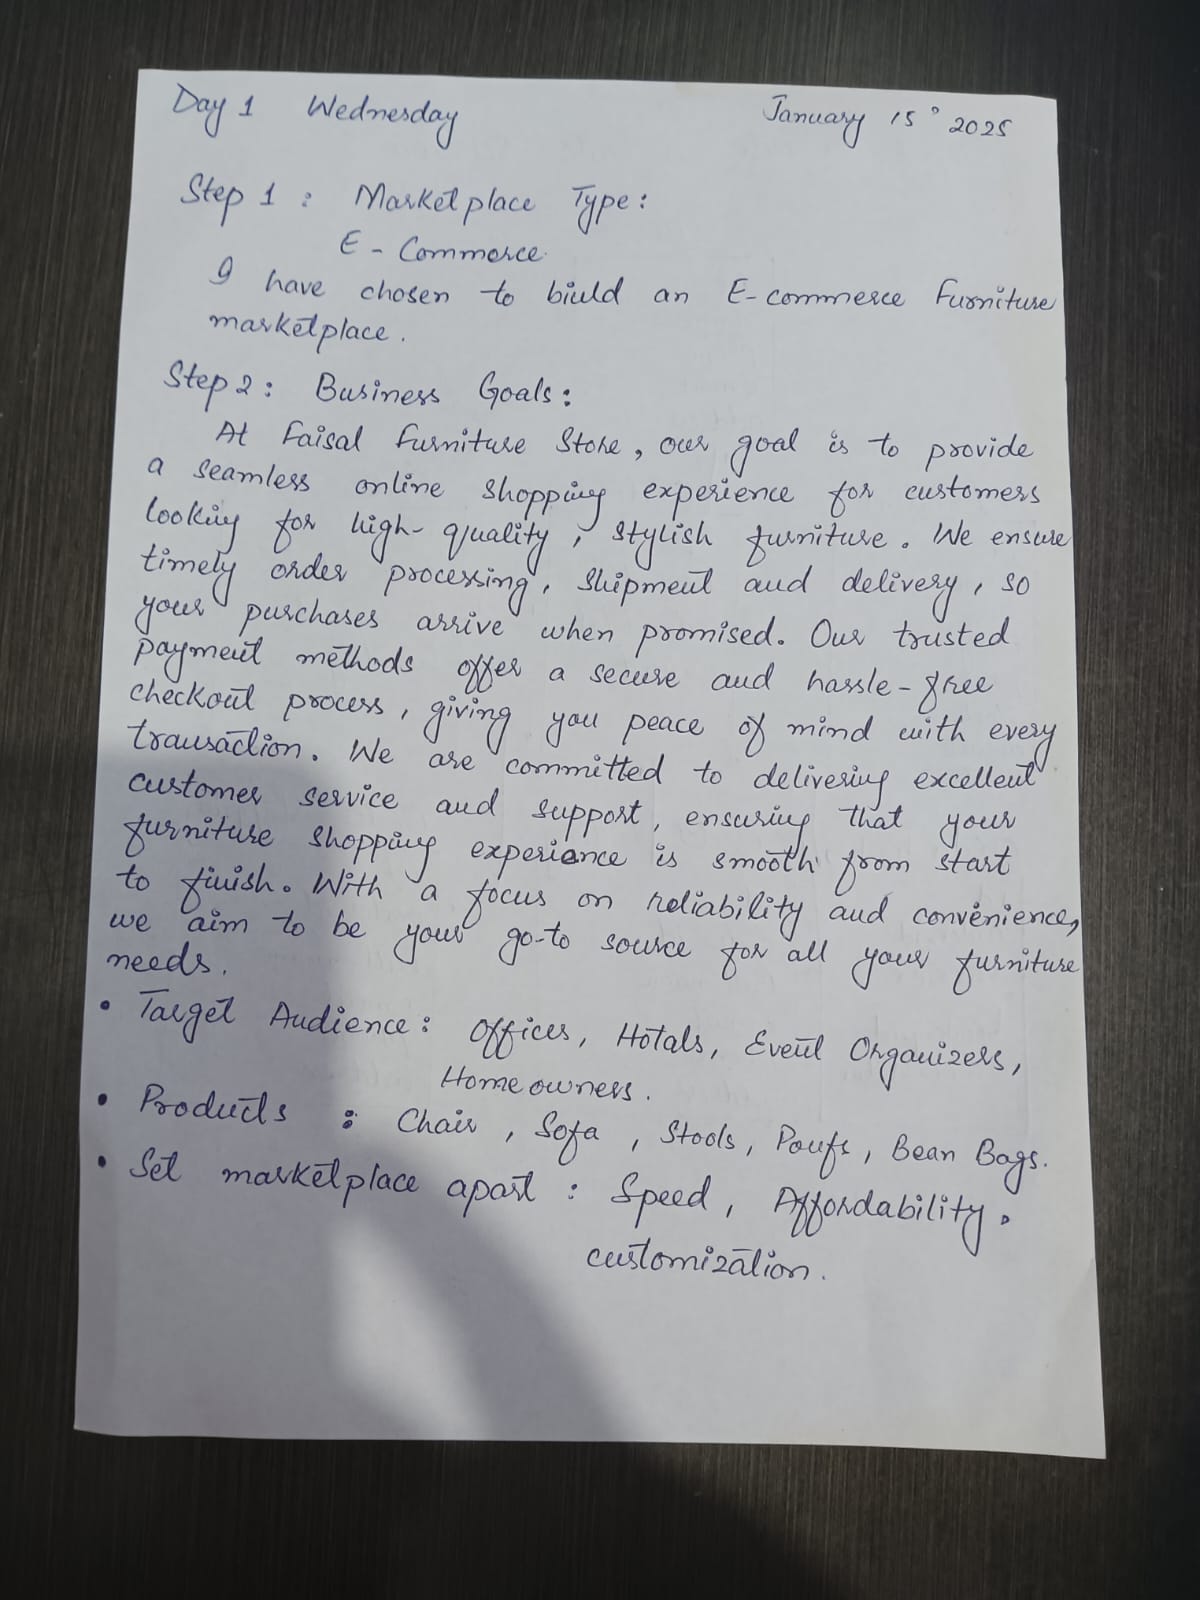 Day 1 Wednesday January 15° 2025
Step 1 : Marketplace Type:
E - Commerce
I have chosen to biuld an E-commerce Furniture
marketplace.
Step 2 : Business Goals:
At Faisal Furniture Store, our goal is to provide
a seamless online shopping experience for customers
looking for high-quality, stylish furniture. We ensure
timely order processing, shipment and delivery, so
your purchases arrive when promised. Our trusted
payment methods offer a secure and hassle-free
checkout process, giving you peace of mind with every
transaction. We are committed to delivering excellent
customer service and support, ensuring that your
furniture shopping experiance is smooth from start
to finish. With a focus on reliability and convenience,
we aim to be your go-to source for all your furniture
needs.
• Target Audience: Offices, Hotals, Event Organizers,
Homeowners.
• Products : Chair, Sofa, Stools, Poufs, Bean Bags.
• Set marketplace apart : Speed, Affordability.
customization.